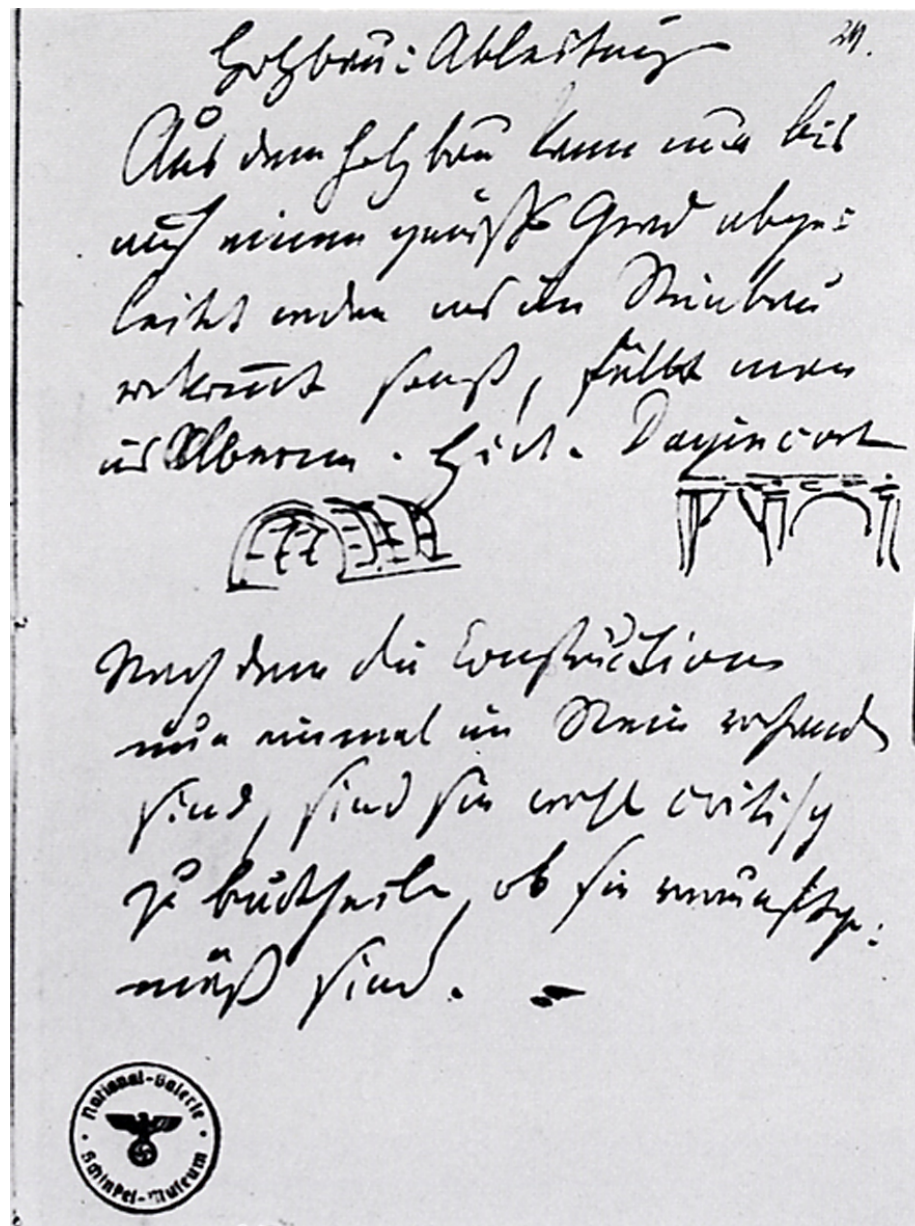 Holzbau: Ableitung
24.
Aus dem Holzbau kann nur bis
auf einen gewissen Grad abge=
leitet werden was im Steinbau
vorkommt sonst, fällt man
ins Alberne. Hirt. Dagincort
Nachdem die Constructionen
nun einmal im Stein vorhanden
sind, sind sie wohl critisch
zu beurtheilen, ob sie vernunftge=
mäß sind.
National-Galerie
Schinkel-Museum